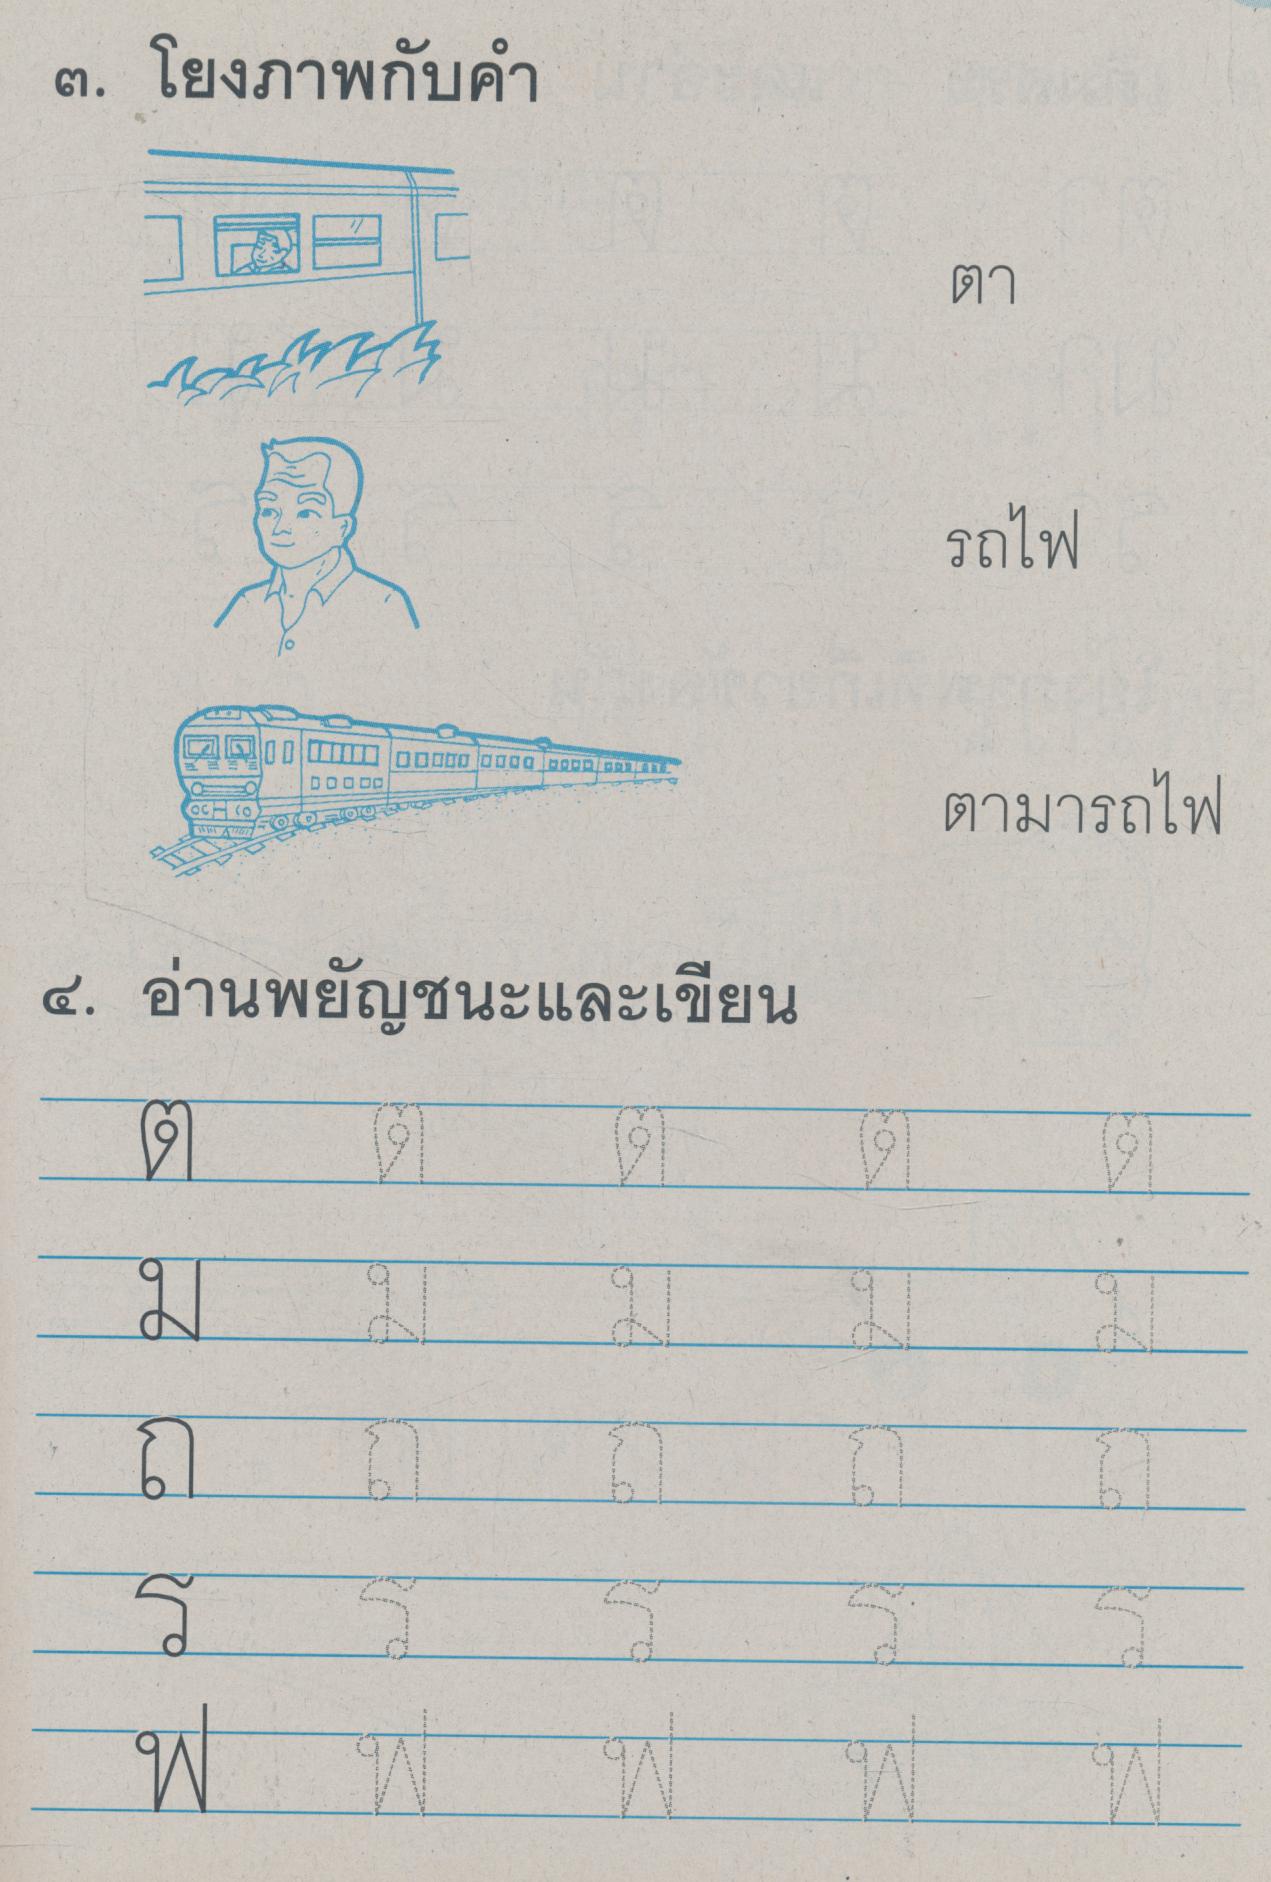 ๓. โยงภาพกับคำ
ตา
รถไฟ
ตามารถไฟ
๔. อ่านพยัญชนะและเขียน
ต ต ต ต ต
ม ม ม ม ม
ถ ถ ถ ถ ถ
ร ร ร ร ร
ฟ ฟ ฟ ฟ ฟ